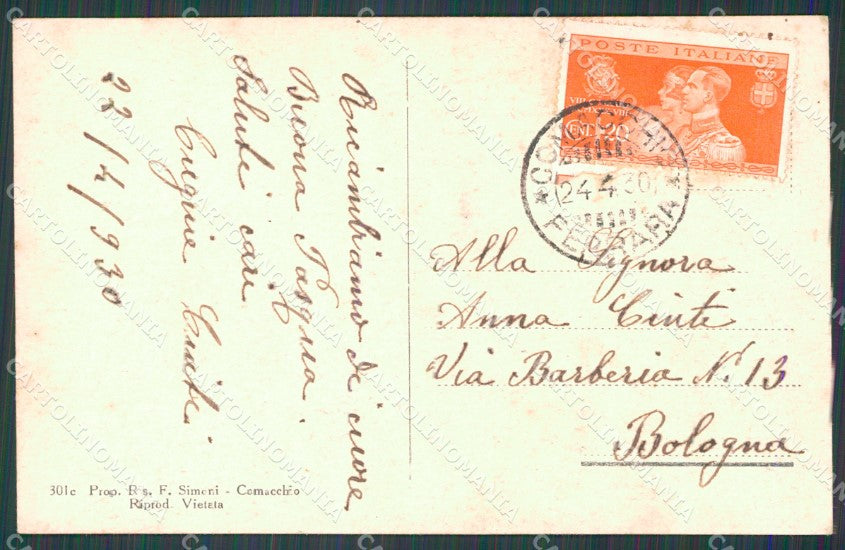 Ricambiamo di cuore
Buona Pasqua.
Saluti cari
Cugine Cinti
22/4/930
POSTE ITALIANE
CENT 20
COMACCHIO
24.4.30
FERRARA
Alla Signora
Anna Cinti
Via Barberia N. 13
Bologna
301c Prop. Ris. F. Simoni - Comacchio
Riprod. Vietata
CARTOLINOMANIA